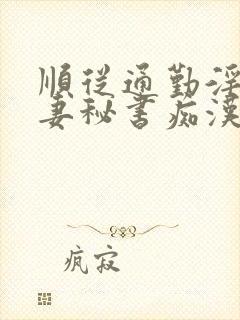 順從通勤淫
妻秘書痴漢
疯寂